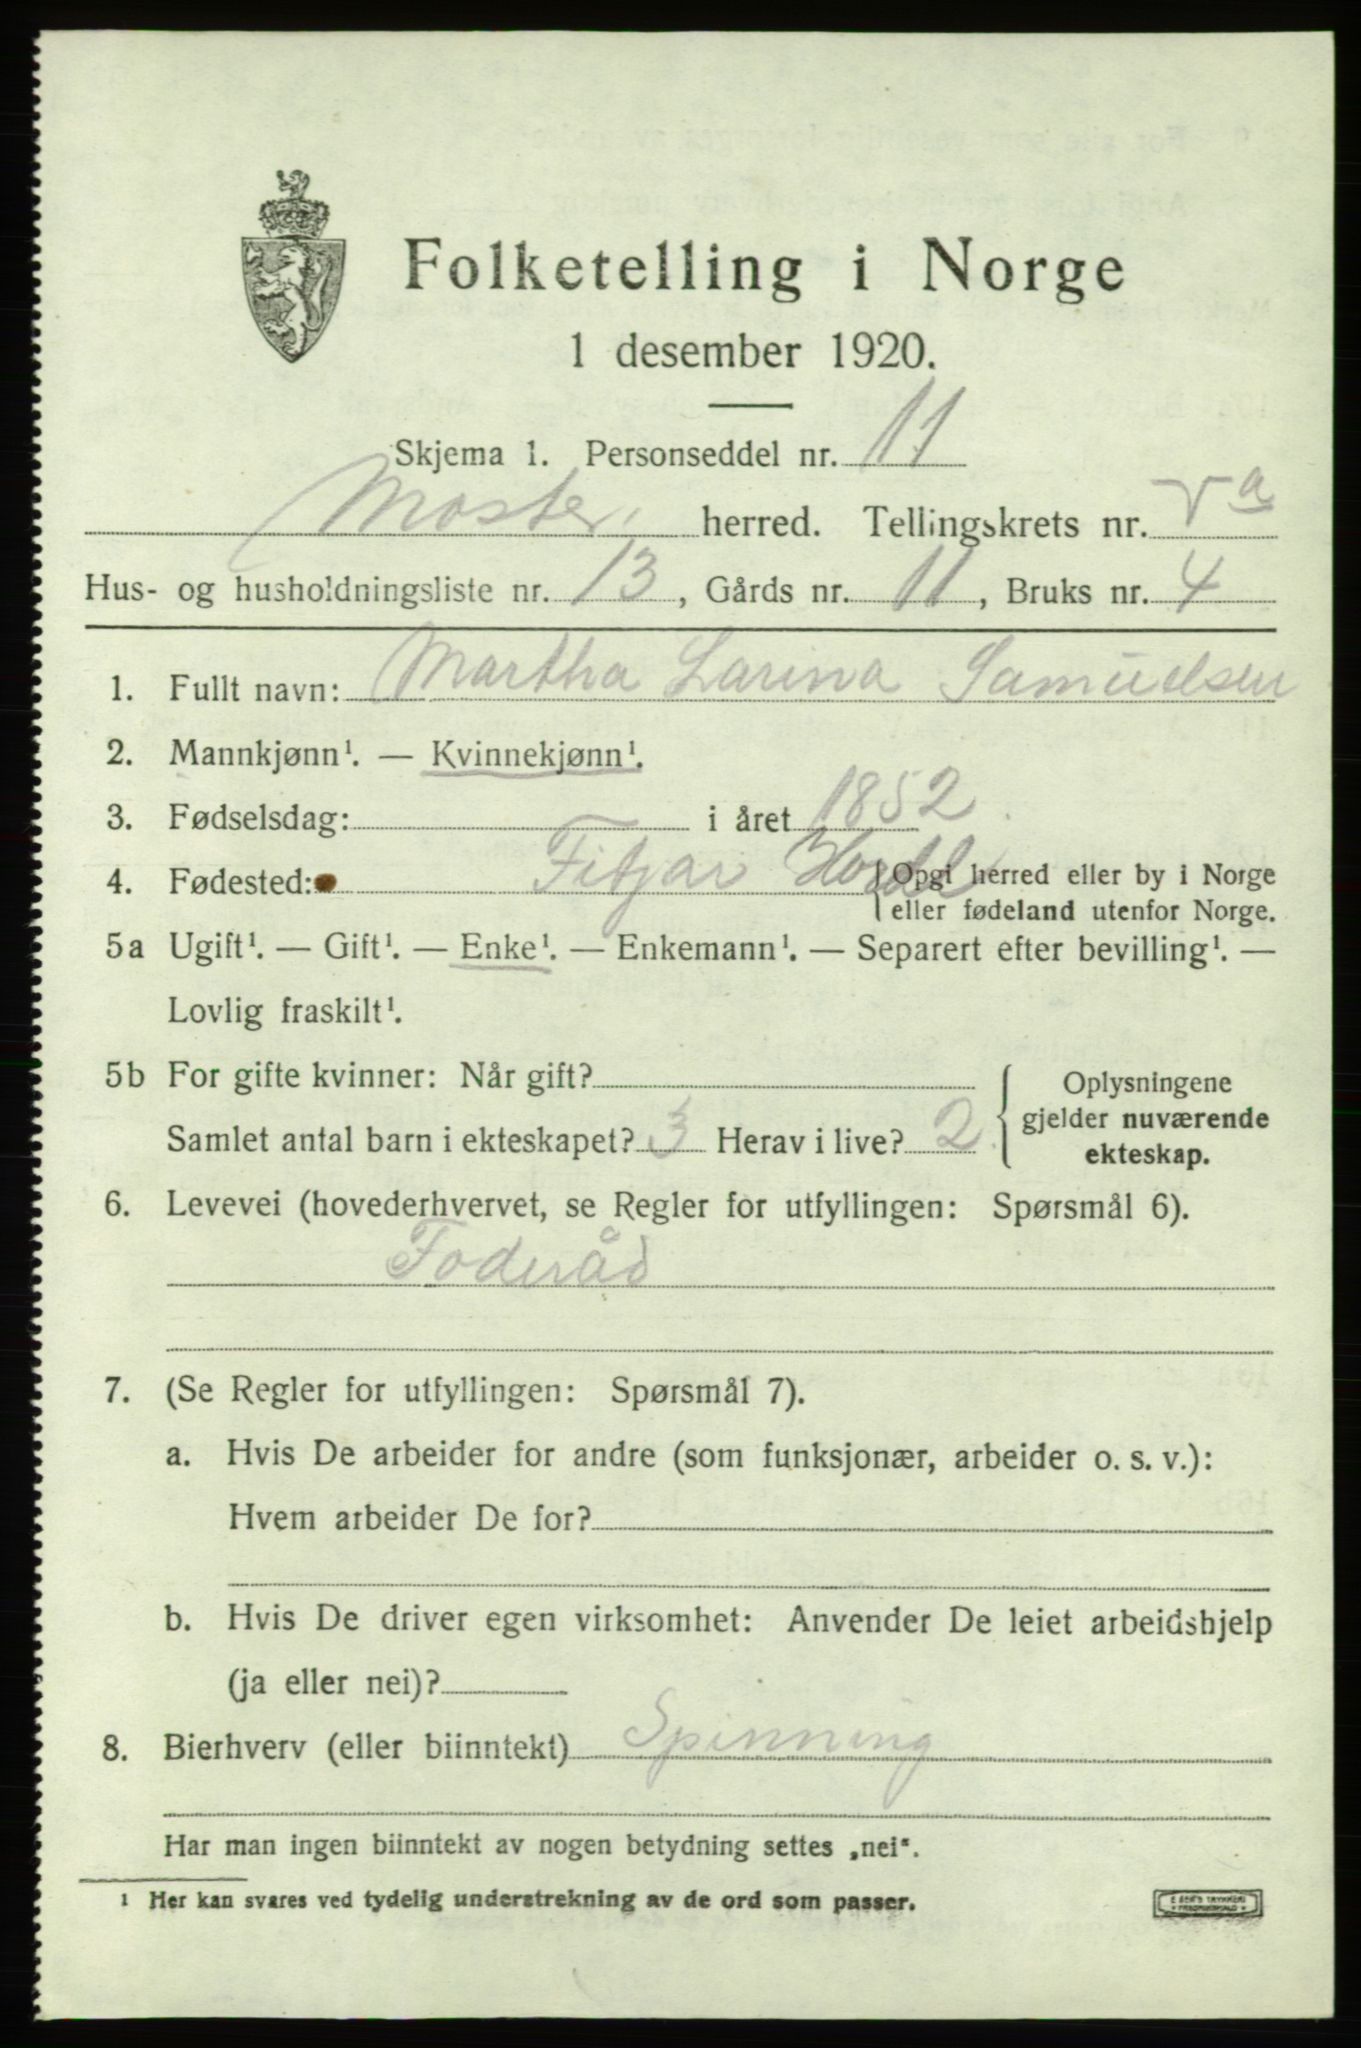 Folketelling i Norge
1 desember 1920.
Skjema 1. Personseddel nr. 11
Moster herred. Tellingskrets nr. V a
Hus- og husholdningsliste nr. 13, Gårds nr. 11, Bruks nr. 4
1. Fullt navn: Martha Larina Samuelsen
2. Mannkjønn¹. — Kvinnekjønn¹.
3. Fødselsdag: i året 1852
4. Fødested: Fitjar Hordl {Opgi herred eller by i Norge
eller fødeland utenfor Norge.
5a Ugift¹. — Gift¹. — Enke¹. — Enkemann¹. — Separert efter bevilling¹. —
Lovlig fraskilt¹.
5b For gifte kvinner: Når gift?
Samlet antal barn i ekteskapet? 3 Herav i live? 2
Oplysningene
gjelder nuværende
ekteskap.
6. Levevei (hovederhvervet, se Regler for utfyllingen: Spørsmål 6).
Foderåd
7. (Se Regler for utfyllingen: Spørsmål 7).
a. Hvis De arbeider for andre (som funksjonær, arbeider o. s. v.):
Hvem arbeider De for?
b. Hvis De driver egen virksomhet: Anvender De leiet arbeidshjelp
(ja eller nei)?
8. Bierhverv (eller biinntekt) Spinning
Har man ingen biinntekt av nogen betydning settes „nei“.
1 Her kan svares ved tydelig understrekning av de ord som passer.